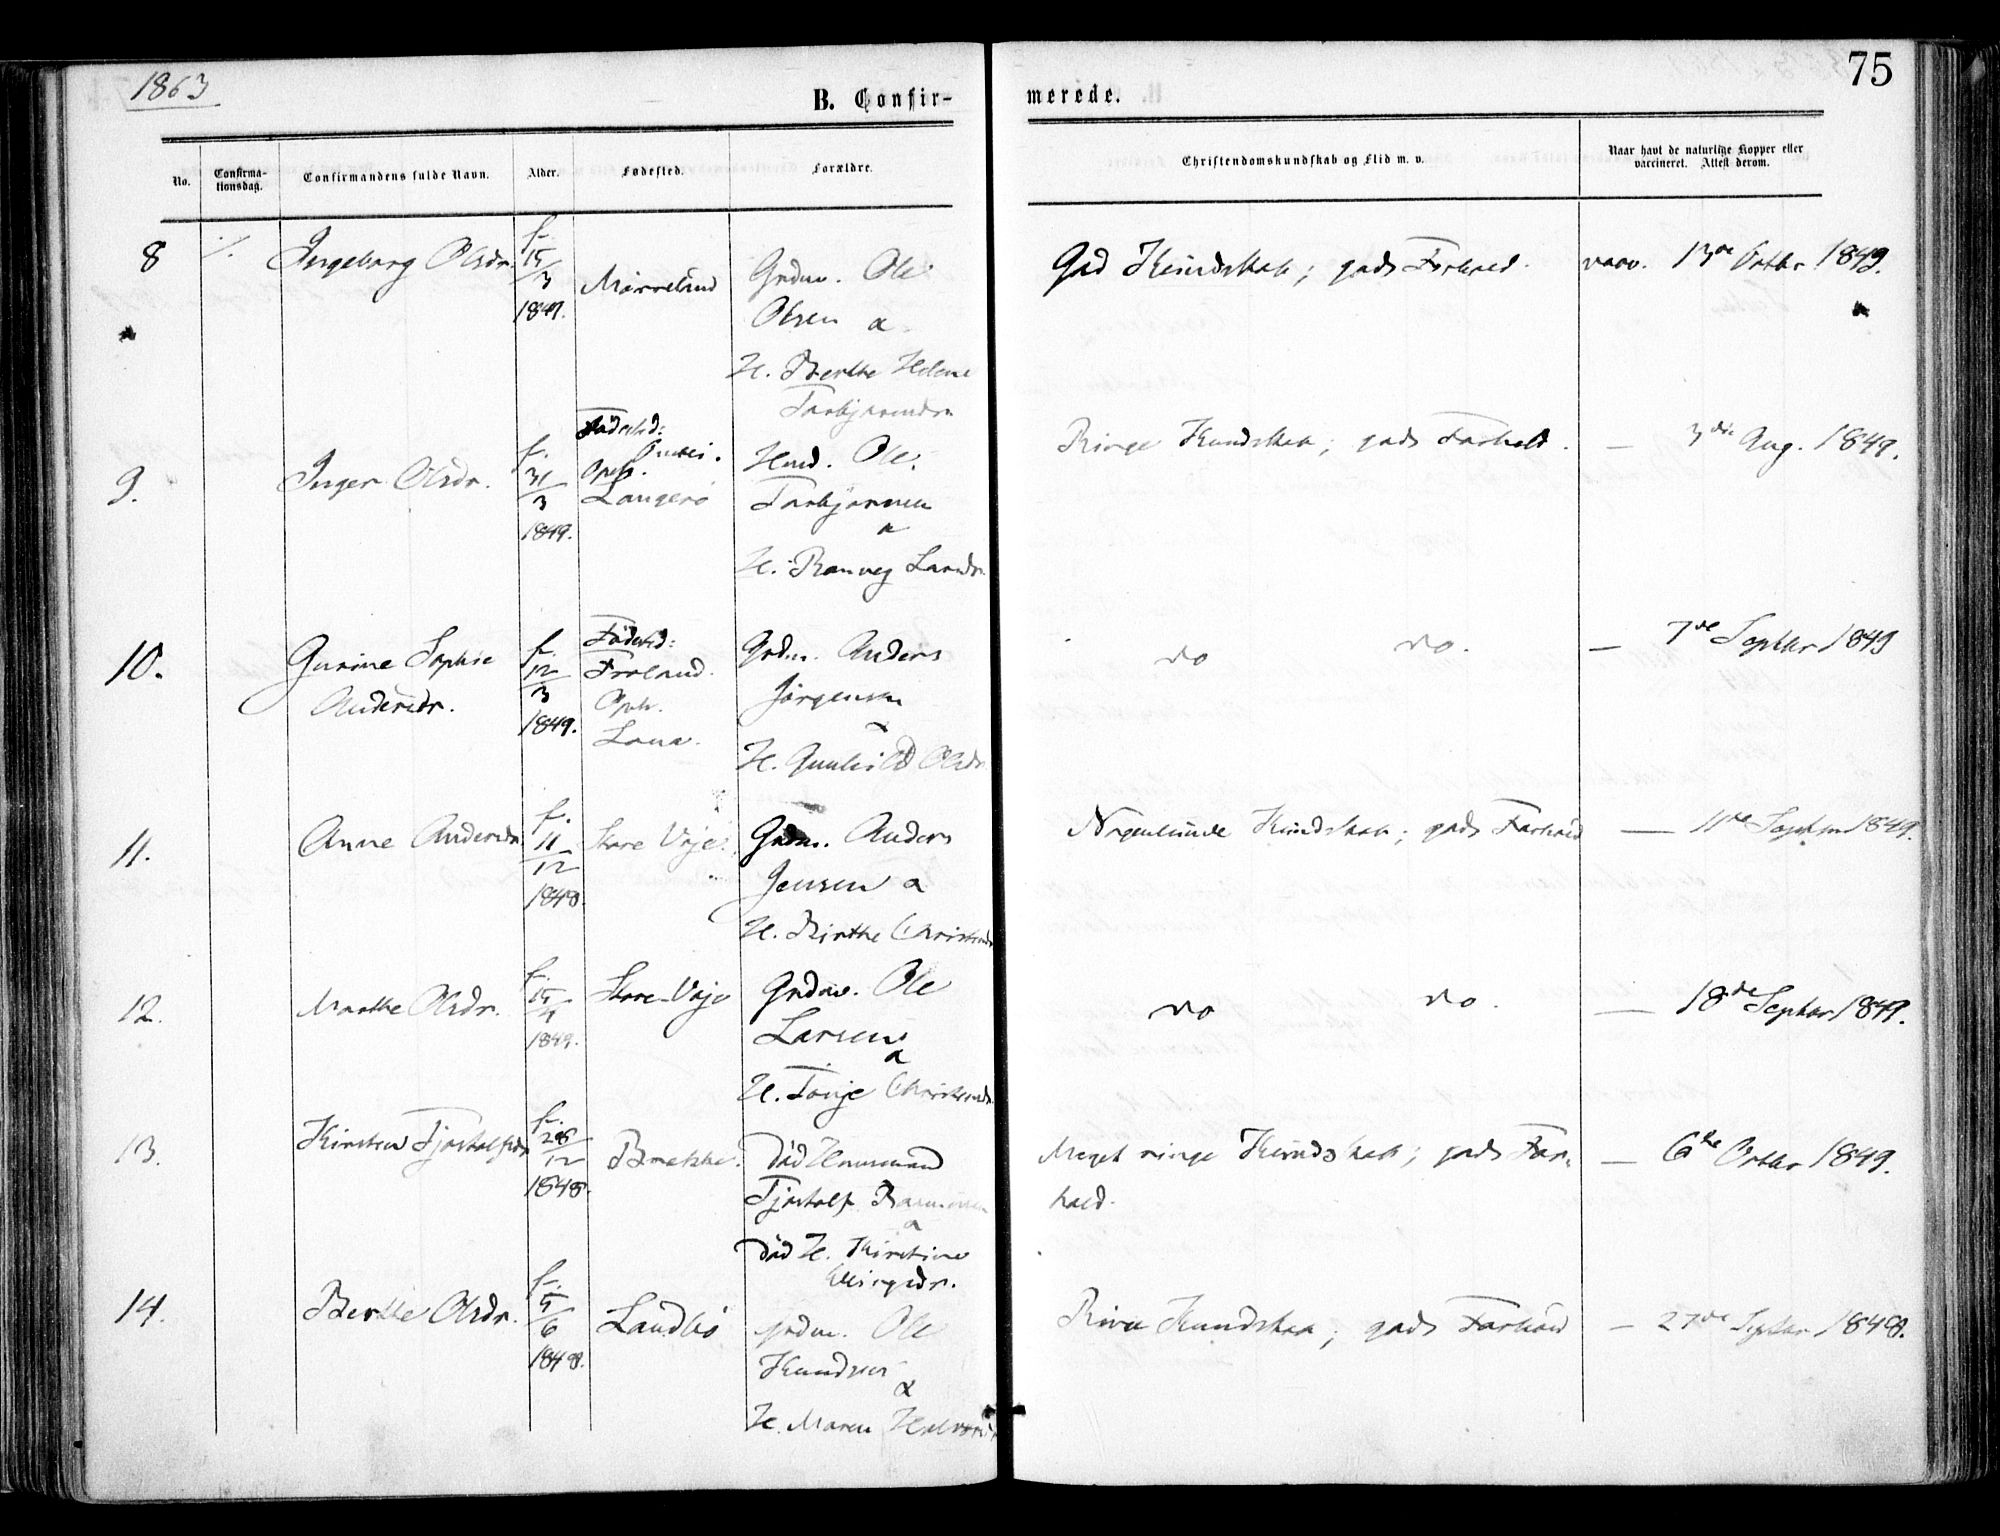 1863
75
B. Confir-
merede.
No.
Confirma-
tionsdag.
Confirmandens fulde Navn.
Alder.
Fødested.
Forældre.
Christendomskundskab og Flid m. v.
Naar havt de naturlige Kopper eller
vaccineret. Attest derom.
8 Ingeborg Olsdr. f. 15/3 1849. Grdm. Ole God Kundskab; gods Forhold. vacc. 13de Octbr 1849.
Olsen &
H. Berthe Helene
Torbjørnsdr
9. Inger Olsdr. f. 31/3 1849. Fødested: Langerø Husm. Ole Ringe Kundskab; gods Forhold. — 3die Aug. 1849.
Opb.
Torbjørnsen
&
H. Ranveg Larsdr.
10. Gurine Sophie f. 12/3 1849. Fødested: Grdm. Anders do do. — 7de Septbr 1849
Andersdr. Froland. Jørgensen
Oph. &
H. Gunhild Olsdr
11. Anne Andersdr f. 11/12 1848. Store Vøje. Grdm. Anders Nogenlunde Kundskab; gods Forhold — 11de Septbr 1849.
Jensen &
H. Birthe Christensdr
12. Marthe Olsdr. f. 1849. Store-Vøje Grdm. Ole do do. — 18de Septbr 1849.
Larsen
&
H. Tonje Christensdr
13. Kirsten Tjostolfsdr f. 28/12 1848. Brekke. Død Husmand Meget ringe Kundskab; gods For- — 6te Octbr 1849.
Tjostolf hold.
&
død H. Kirstine
14. Berthe Olsdr. f. 5/6 1848. Landbø Grdm. Ole Kundskab; gods Forhold — 27de Septbr 1848.
Knudsen
&
H. Maren